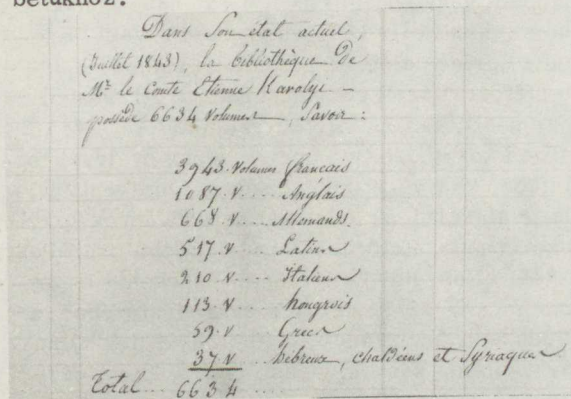 betukhoz.
Dans son état actuel,
(Juillet 1843), la bibliothèque de
Mr le Comte Etienne Karolyi –
possède 6634 Volumes, Savoir :
3943 . Volumes francais
1087 . V .... Anglais
668 . V .... Allemands.
517 . V .... Latins
210 . V .... Italiens
113 . V .... hongrois
59 . V .... Grecs
37 V .. hébreux, chaldéens et Syriaques
Total ... 6634 ....